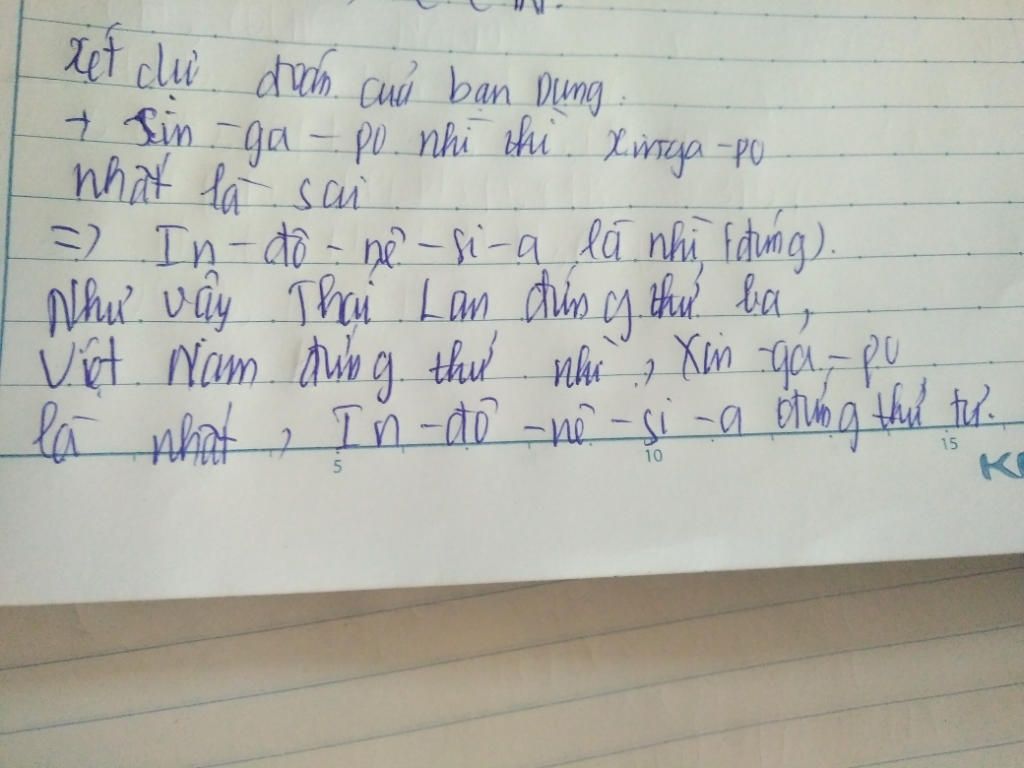 Xét dự đoán của bạn Dung.
+ Sin-ga-po nhì thì Xinga-po
nhất là sai
=> In-đô-nê-si-a là nhì (đúng).
Như vậy Thái Lan đứng thứ ba,
Việt Nam đứng thứ nhì, Xin-ga-po
là nhất, In-đô-nê-si-a đứng thứ tư.
5 10 15